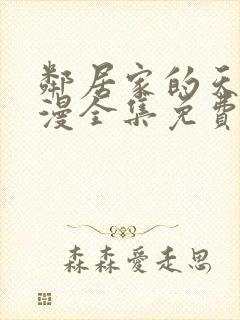 鄰居家的天
漫全集免費
森森愛走思